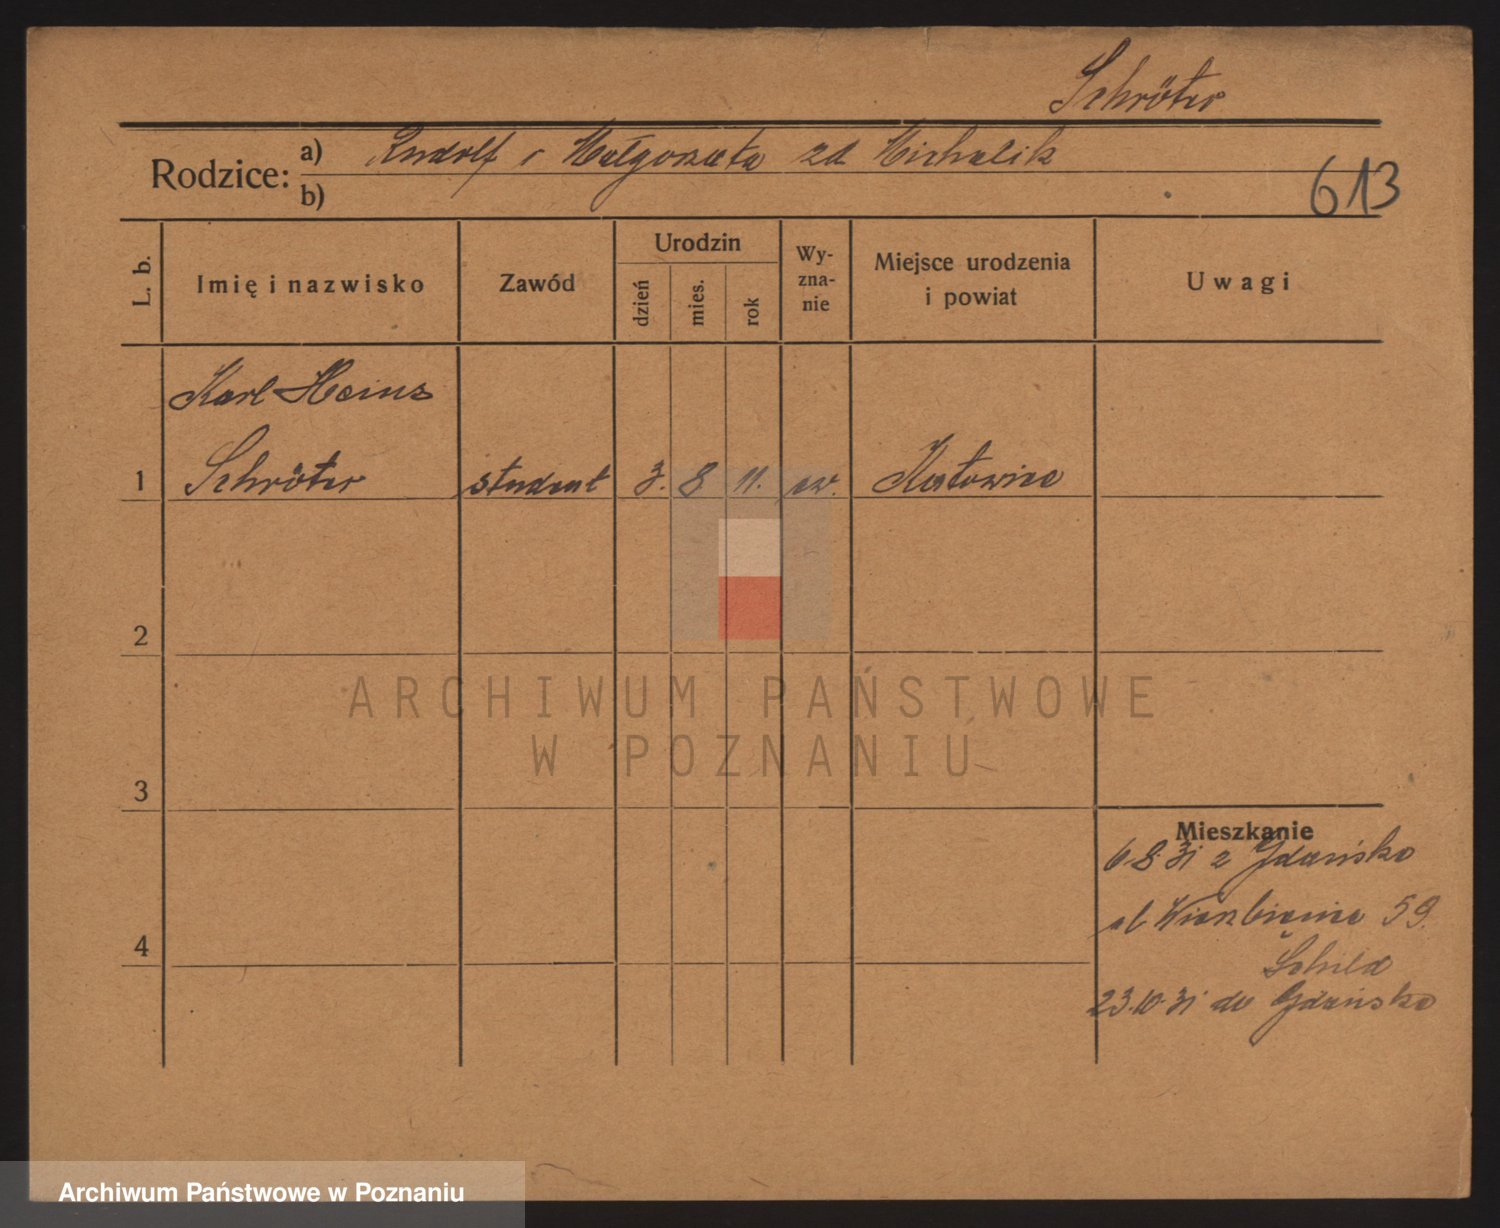 Schröter
Rodzice: a) Rudolf i Małgorzata zd Michalik
b)
613
L. b.
Imię i nazwisko
Zawód
Urodzin
dzień
mies.
rok
Wy-
zna-
nie
Miejsce urodzenia
i powiat
Uwagi
Karl Heinz
1 Schröter student 3. 8 11. ew. Katowice
2
ARCHIWUM PAŃSTWOWE
W POZNANIU
3
Mieszkanie
6.8.31 z Gdańska
ul Wierzbięcice 59.
Schild
4
23.10.31 do Gdańska
Archiwum Państwowe w Poznaniu